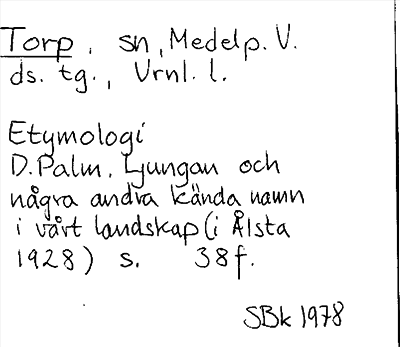 Torp, sn, Medelp. V.
ds. tg., Vrnl. l.
Etymologi
D. Palm, Ljungan och
några andra kända namn
i vårt landskap (i Ålsta
1928) s. 38f.
SBk 1978